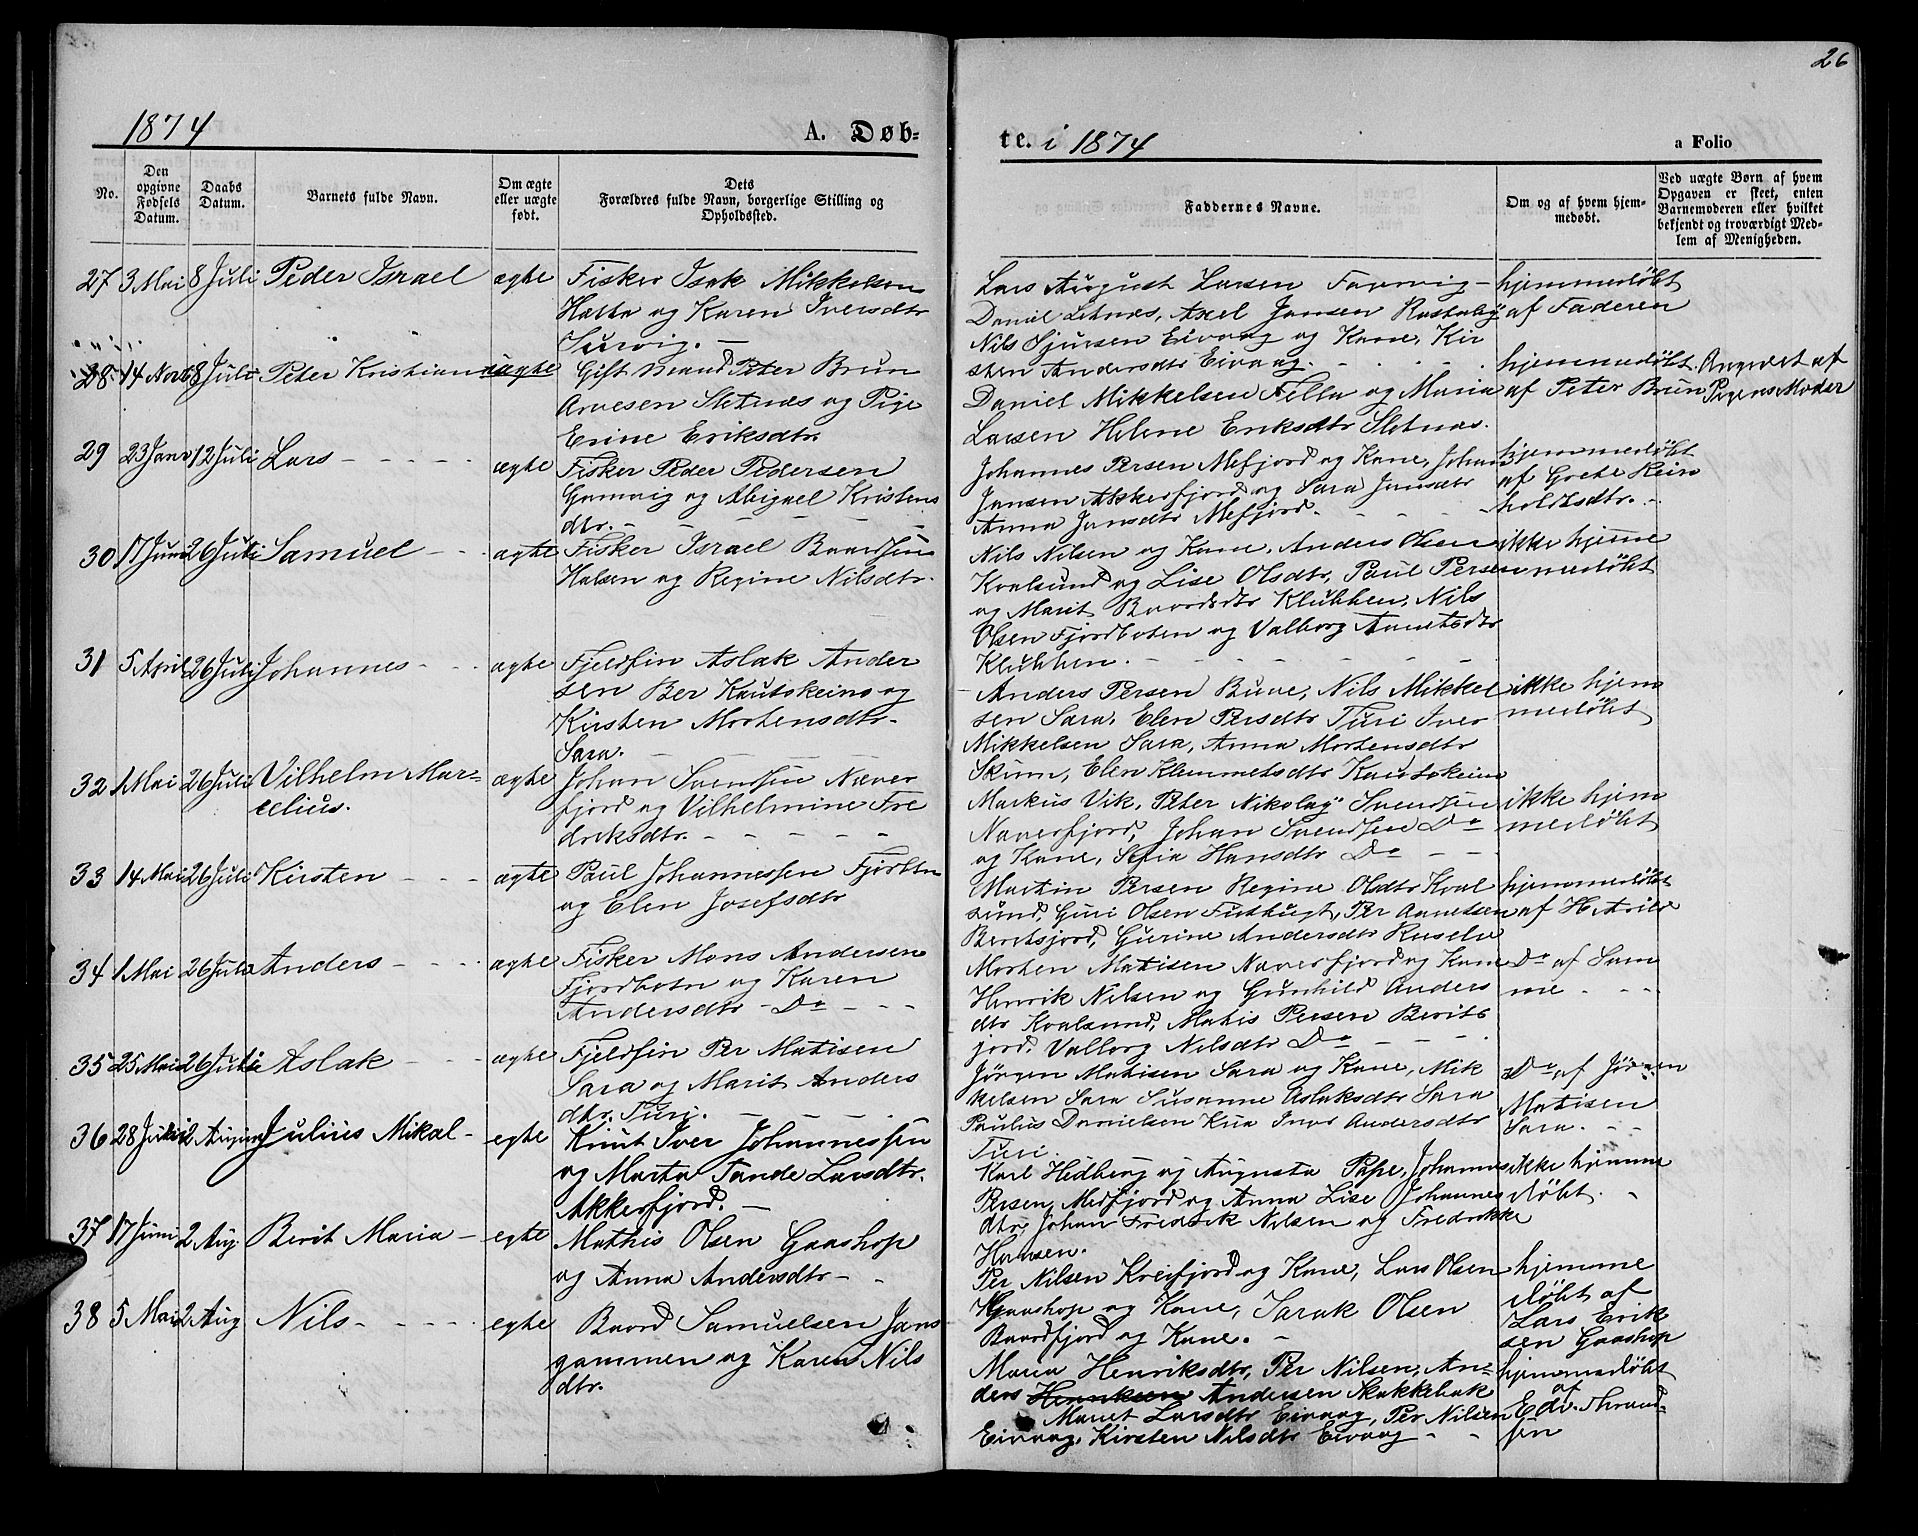 26
1874
A. Døb-
te. i 1874
a Folio
No.
Den opgivne Fødsels Datum.
Daabs Datum.
Barnets fulde Navn.
Om ægte eller uægte født.
Dets Forældres fulde Navn, borgerlige Stilling og Opholdssted.
Faddernes Navne.
Om og af hvem hjemmedøbt.
Ved uægte Børn af hvem Opgaven er skeet, enten Barnemoderen eller hvilket bekjendt og troværdigt Medlem af Menigheden.
27 3 Mai 8 Juli Peder Israel ægte Fisker Isak Mikkelsen
Hætta og Karen Iversdtr
Survig. —
Lars August Larsen Favrvig —
Daniel Letnæs, Axel Jansen Rastaby
Nils Sjursen Eivaag og Kone, Kir
sten Andersdtr Eivaag.
hjemmedøbt
af Faderen
28 14 Novb 8 Juli Peter Kristian uægte Gift Mand Peter Brun
Arnesen Sletnæs og Pige
Erine Eriksdtr.
Daniel Mikkelsen Fella og Maria
Larsen Helene Eriksdtr Sletnæs.
hjemmedøbt
af Peter Brun
Angivet af
Pigens Moder
29 23 Janr 12 Juli Lars — ægte Fisker Peder Pedersen
Gamvig og Abigael Kristens
dtr. —
Johannes Persen Mefjord og Kone, Johan
Jansen Akkerfjord og Sara Jansdtr
Anna Jansdtr Mefjord.
hjemmedøbt
af Grete Rein
holdtsdtr.
30 17 Juni 26 Juli Samuel — ægte Fisker Israel Baardsen
Halsen og Regine Nilsdtr.
Nils Nilsen og Kone, Anders Olsen
Kvalsund og Lise Olsdtr, Paul Persen
og Marit Baardsdtr Klubben, Nils
Olsen Fjordboten og Valborg Aanetsdtr
Klubben. —
ikke hjemme
medøbt
31 5 April 26 Juli Johannes — ægte Fjeldfin Aslak Ander
sen Bær Kautokeino og
Kirsten Mortensdtr
Sara. —
Anders Persen Buve, Nils Mikkel
sen Sara, Elen Persdtr Turi Iver
Mikkelsen Sara, Anna Mortensdtr
Skum, Elen Klemmetsdtr Kautokeino
ikke hjem
medøbt
32 1 Mai 26 Juli Vilhelm Mar=
celius. ægte Johan Svendsen Næver
fjord og Vilhelmine Fre
driksdtr. —
Markus Vik, Peter Nikolay Svendsen
Naverfjord, Johan Svendsen Do
og Kone, Sofia Hansdtr Do —
ikke hjem
medøbt
33 14 Mai 26 Juli Kirsten — ægte Paul Johannessen Fjordbtn
og Elen Josefsdtr
Martin Persen Regine Olsdtr Kval
sund, Guri Olsen Futhugt, Per Aanetsen
Beritsjord, Gurine Andersdtr
hjemmedøbt
af H. Arild
34 1 Mai 26 Juli Anders — ægte Fisker Mons Andersen
Fjordbotn og Karen
Andersdtr — Do —
Morten Matisen Naverfjord og Kone
Henrik Nilsen og Gunhild Anders
dtr Kvalsund, Matis Persen Berits
jord. Valborg Nilsdtr Do —
Do af Sam
me —
35 25 Mai 26 Juli Aslak — ægte Fjeldfin Per Matisen
Sara og Marit Anders
dtr. Turi. —
Jørgen Matisen Sara og Kone, Mik
kelsen Sara Susanne Aslaksdtr Sara
Paulus Danielsen Kua Inor Andersdtr
Turi.
Do af Jørgen
Matisen
Sara. —
36 28 Juni 2 August Julius Mikal — egte Knut Iver Johannessen
og Marta Tande Larsdtr.
Akkerfjord. —
Karl Hedberg og Augusta Pape, Johannes
Persen, Medfjord og Anna Lise Johannes
dtr, Johan Fredrik Nilsen og Fredrikke
Hansen.
ikke hjemme
døbt.
37 17 Juni 2 Aug. Berit Maria — egte Mathis Olsen Gaashop
og Anna Andersdtr —
Per Nilsen Kreifjord og Kone, Lars Olsen
Gaashop og Kone, Sarak Olsen
Baardfjord og Kone. —
hjemme
døbt af
Lars Erik
sen Gaashop
38 5 Mai 2 Aug Nils — egte Baard Samuelsen Jans
gammen og Karen Nils
dtr.
Maria Henriksdtr, Per Nilsen, An=
ders Henriksen Andersen Skakkebak
Marit Larsdtr Eivaag, Per Nilsen
Eivaag, Kirsten Nilsdtr Eivaag —
hjemmedøbt
af
Edv. Thrand=
sen